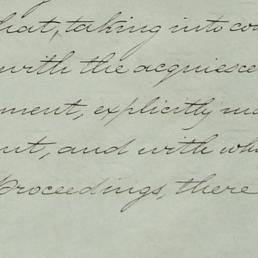 hat, taking into co
with the acquiesce
ment, explicitly m
ut, and with wh
Proceedings, there